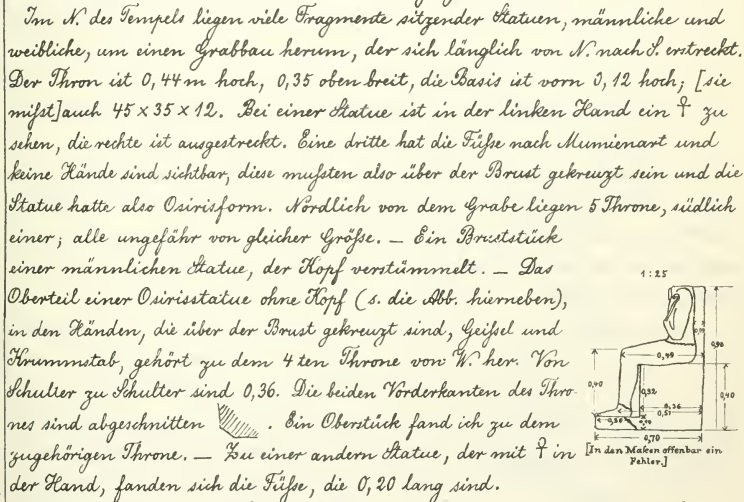 Im N. des Tempels liegen viele Fragmente sitzender Statuen, männliche und
weibliche, um einen Grabbau herum, der sich länglich von N. nach S. erstreckt.
Der Thron ist 0,44 m hoch, 0,35 oben breit, die Basis ist vorn 0,12 hoch; [sie
mißt] auch 45 × 35 × 12. Bei einer Statue ist in der linken Hand ein ☥ zu
sehen, die rechte ist ausgestreckt. Eine dritte hat die Füße nach Mumienart und
keine Hände sind sichtbar, diese mußten also über der Brust gekreuzt sein und die
Statue hatte also Osirisform. Nördlich von dem Grabe liegen 5 Throne, südlich
einer; alle ungefähr von gleicher Größe. — Ein Bruststück
einer männlichen Statue, der Kopf verstümmelt. — Das
Oberteil einer Osirisstatue ohne Kopf (s. die Abb. hierneben),
in den Händen, die über der Brust gekreuzt sind, Geißel und
Krummstab, gehört zu dem 4ten Throne von W. her. Von
Schulter zu Schulter sind 0,36. Die beiden Vorderkanten des Thro-
nes sind abgeschnitten . Ein Oberstück fand ich zu dem
zugehörigen Throne. — Zu einer andern Statue, der mit ☥ in
der Hand, fanden sich die Füße, die 0,20 lang sind.
1:25
0,98
0,49
0,40
0,32
0,40
0,36
0,51
0,70
[In den Maßen offenbar ein
Fehler.]